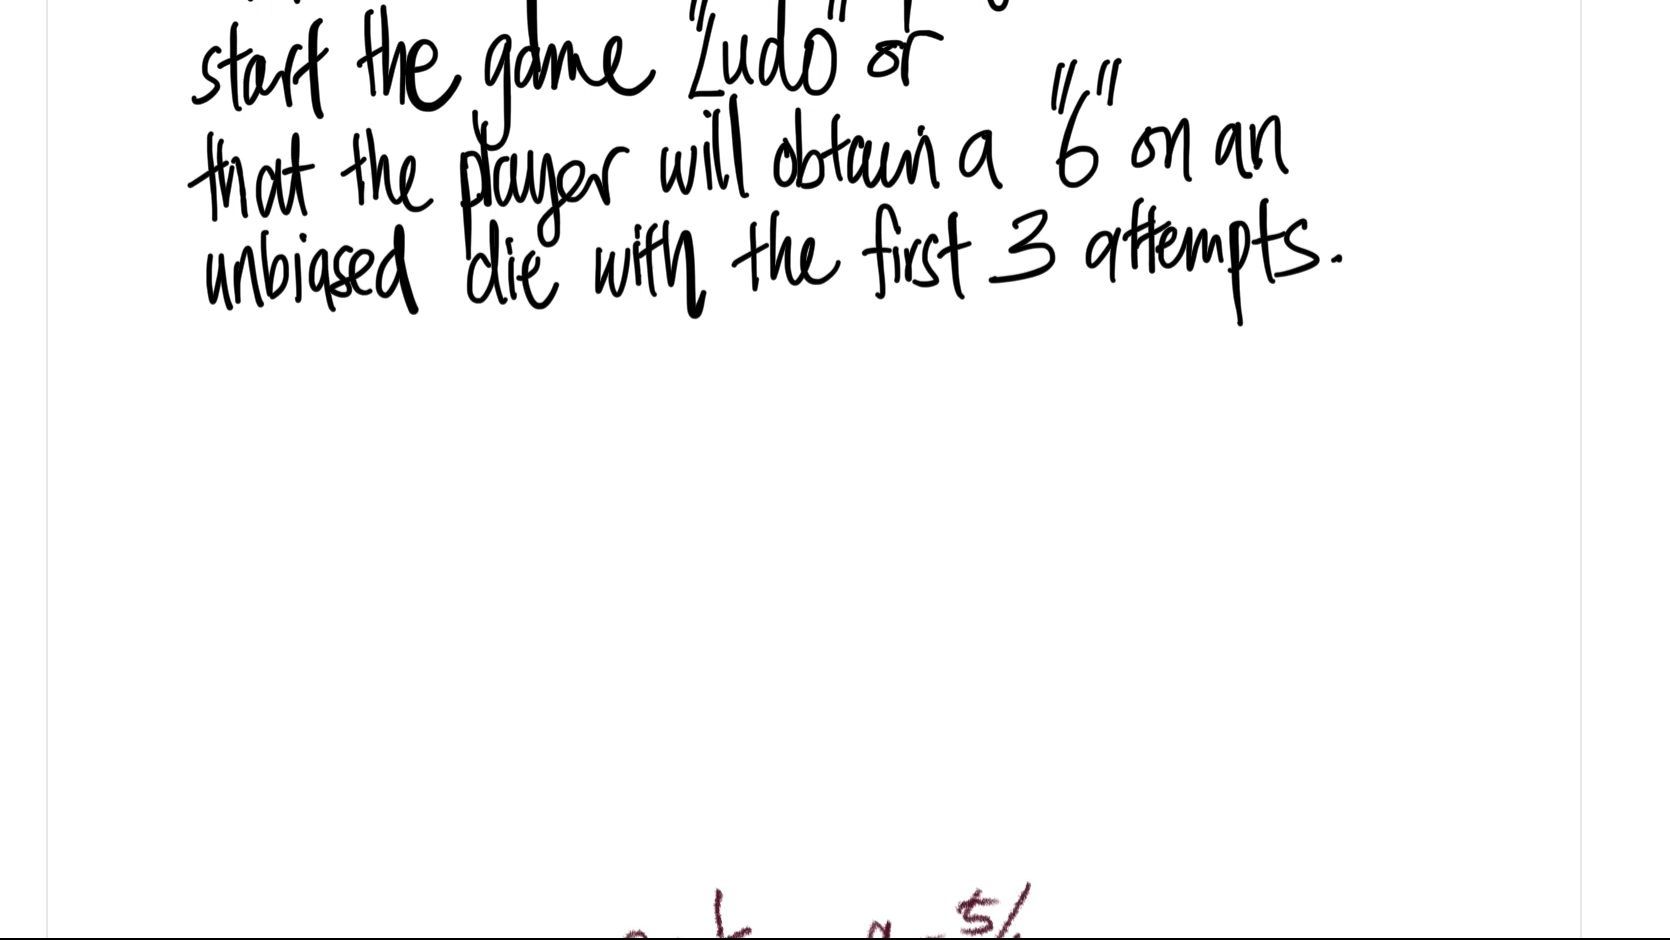 start the game "Ludo" or
that the player will obtain a "6" on an
unbiased die with the first 3 attempts.